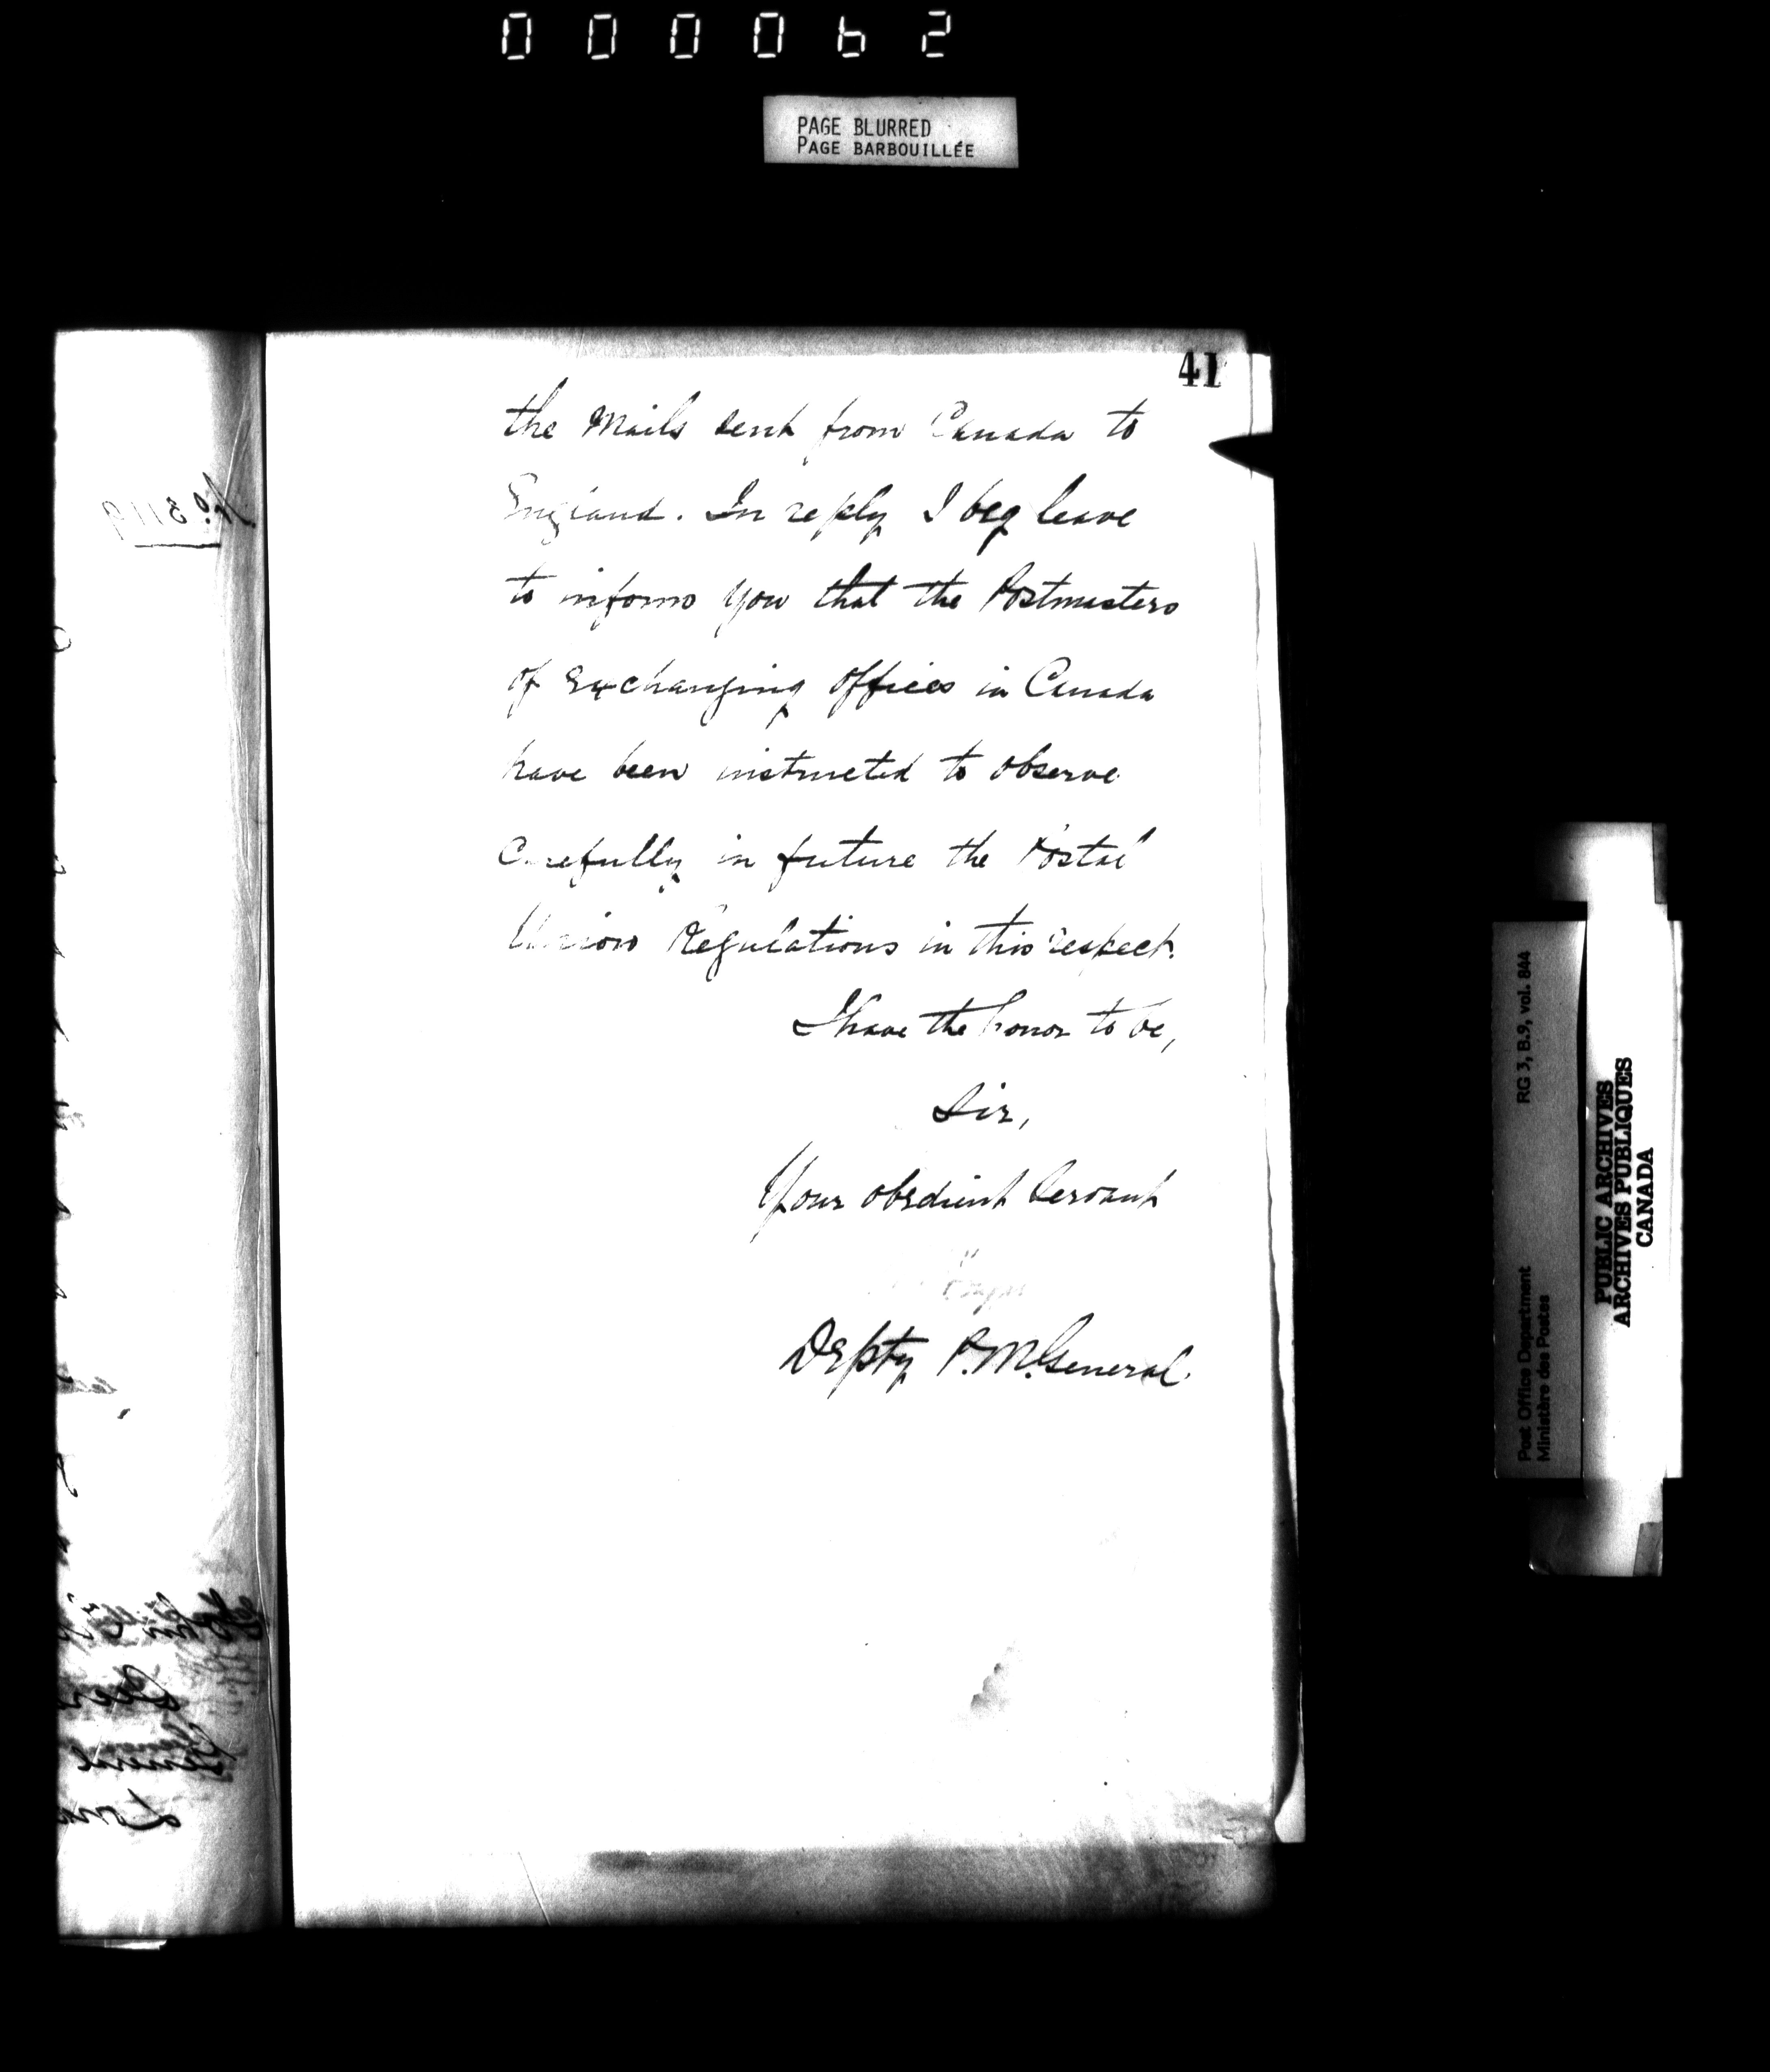 000062
PAGE BLURRED
PAGE BARBOUILLÉE
41
the Mails sent from Canada to
England. In reply I beg leave
to inform you that the Postmasters
of Exchanging Offices in Canada
have been instructed to observe
carefully in future the Postal
Union Regulations in this respect.
I have the honor to be,
Sir,
Your obedient Servant
Depty P.M.General.
No. 3119
RG 3, B.9, vol. 844
Post Office Department
Ministère des Postes
PUBLIC ARCHIVES
ARCHIVES PUBLIQUES
CANADA